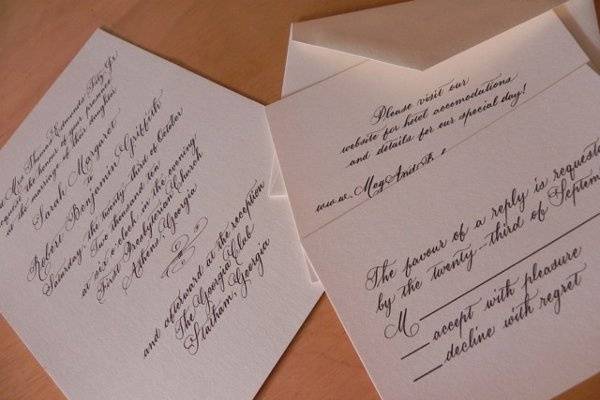 Mrs. Thomas Edmunds Tidy, Jr.
request the honour of your presence
at the marriage of their daughter
Sarah Margaret
Robert Benjamin Griffith
Saturday, the twenty-third of October
Two thousand ten
at six o'clock in the evening
First Presbyterian Church
Athens, Georgia
and afterward at the reception
The Georgia Club
Statham, Georgia
Please visit our
website for hotel accomodations
and details for our special day!
www.
The favour of a reply is requested
by the twenty-third of Septem
M
accept with pleasure
decline with regret